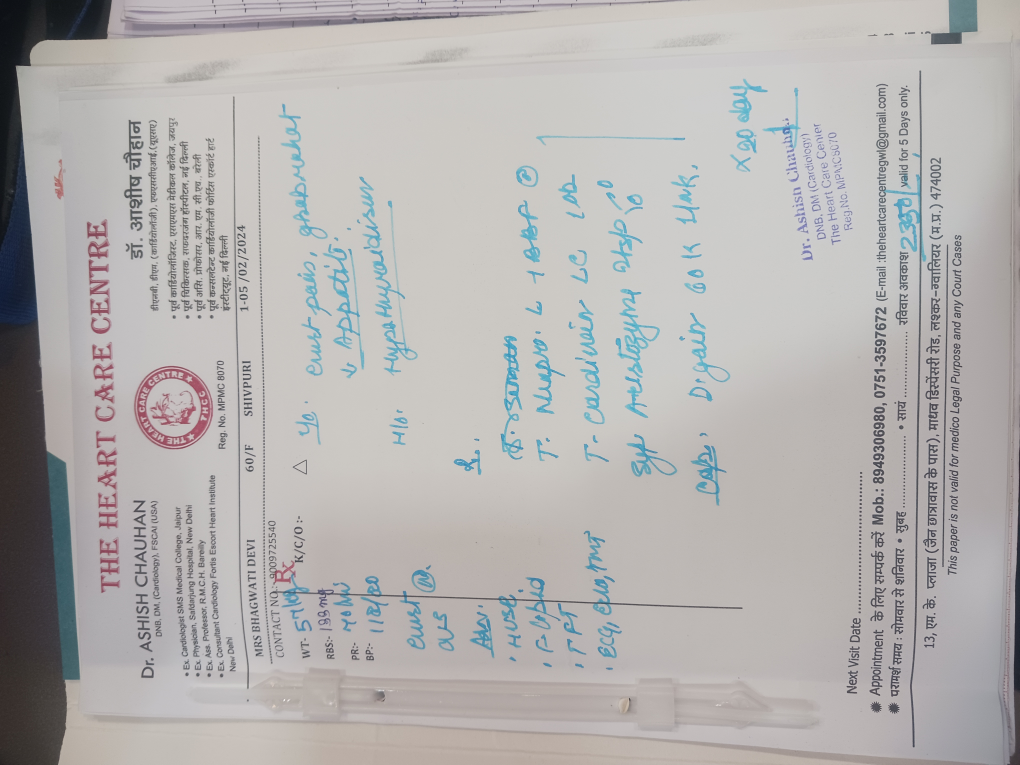 THE HEART CARE CENTRE
Dr. ASHISH CHAUHAN
DNB, DM, (Cardiology), FSCAI (USA)
• Ex. Cardiologist SMS Medical College, Jaipur
• Ex. Physician, Safdarjung Hospital, New Delhi
• Ex. Ass. Professor, R.M.C.H. Bareilly
• Ex. Consultant Cardiology Fortis Escort Heart Institute
New Delhi
THE HEART CARE CENTRE
THCC
Reg. No. MPMC 8070
डॉ. आशीष चौहान
डीएनबी, डीएम, (कार्डियोलॉजी), एफएससीएआई,(यूएसए)
• पूर्व कार्डियोलॉजिस्ट, एसएमएस मेडीकल कॉलेज, जयपुर
• पूर्व चिकित्सक, सफदरजंग हॉस्पीटल, नई दिल्ली
• पूर्व असि. प्रोफेसर, आर. एम. सी. एच., बरेली
• पूर्व कन्सलटेन्ट कार्डियोलॉजी फोर्टिस एस्कोर्ट हार्ट
इंस्टीट्यूट, नई दिल्ली
MRS BHAGWATI DEVI 60/F SHIVPURI 1-05 /02/2024
CONTACT NO.:-9009725540
Rx
WT- 54 kg K/C/O :-
RBS:- 133 mg
PR:-
BP:- 110/70
Chest
CVS
Adv.
• T. Lipid
• TFT
• ECG, Echo, TMT
△ Y/o. Chest pain, ghabrahat
↓ Appetite.
H/o. Hypothyroidism
R.
T. Nexpro. L
T. Cardivair LC
Syp Aristozyme
Cap. Dgain 60K
x 20 day
Dr. Ashish Chauhan
DNB. DM (Cardiology)
The Heart Care Center
Reg.No. MPMC8070
Next Visit Date
Appointment के लिए सम्पर्क करें Mob.: 8949306980, 0751-3597672 (E-mail :theheartcarecentregwl@gmail.com)
परामर्श समय : सोमवार से शनिवार • सुबह • सायं रविवार अवकाश valid for 5 Days only.
13, एम. के. प्लाजा (जैन छात्रावास के पास), माधव डिस्पेंसरी रोड, लश्कर-ग्वालियर (म.प्र.) 474002
This paper is not valid for medico Legal Purpose and any Court Cases